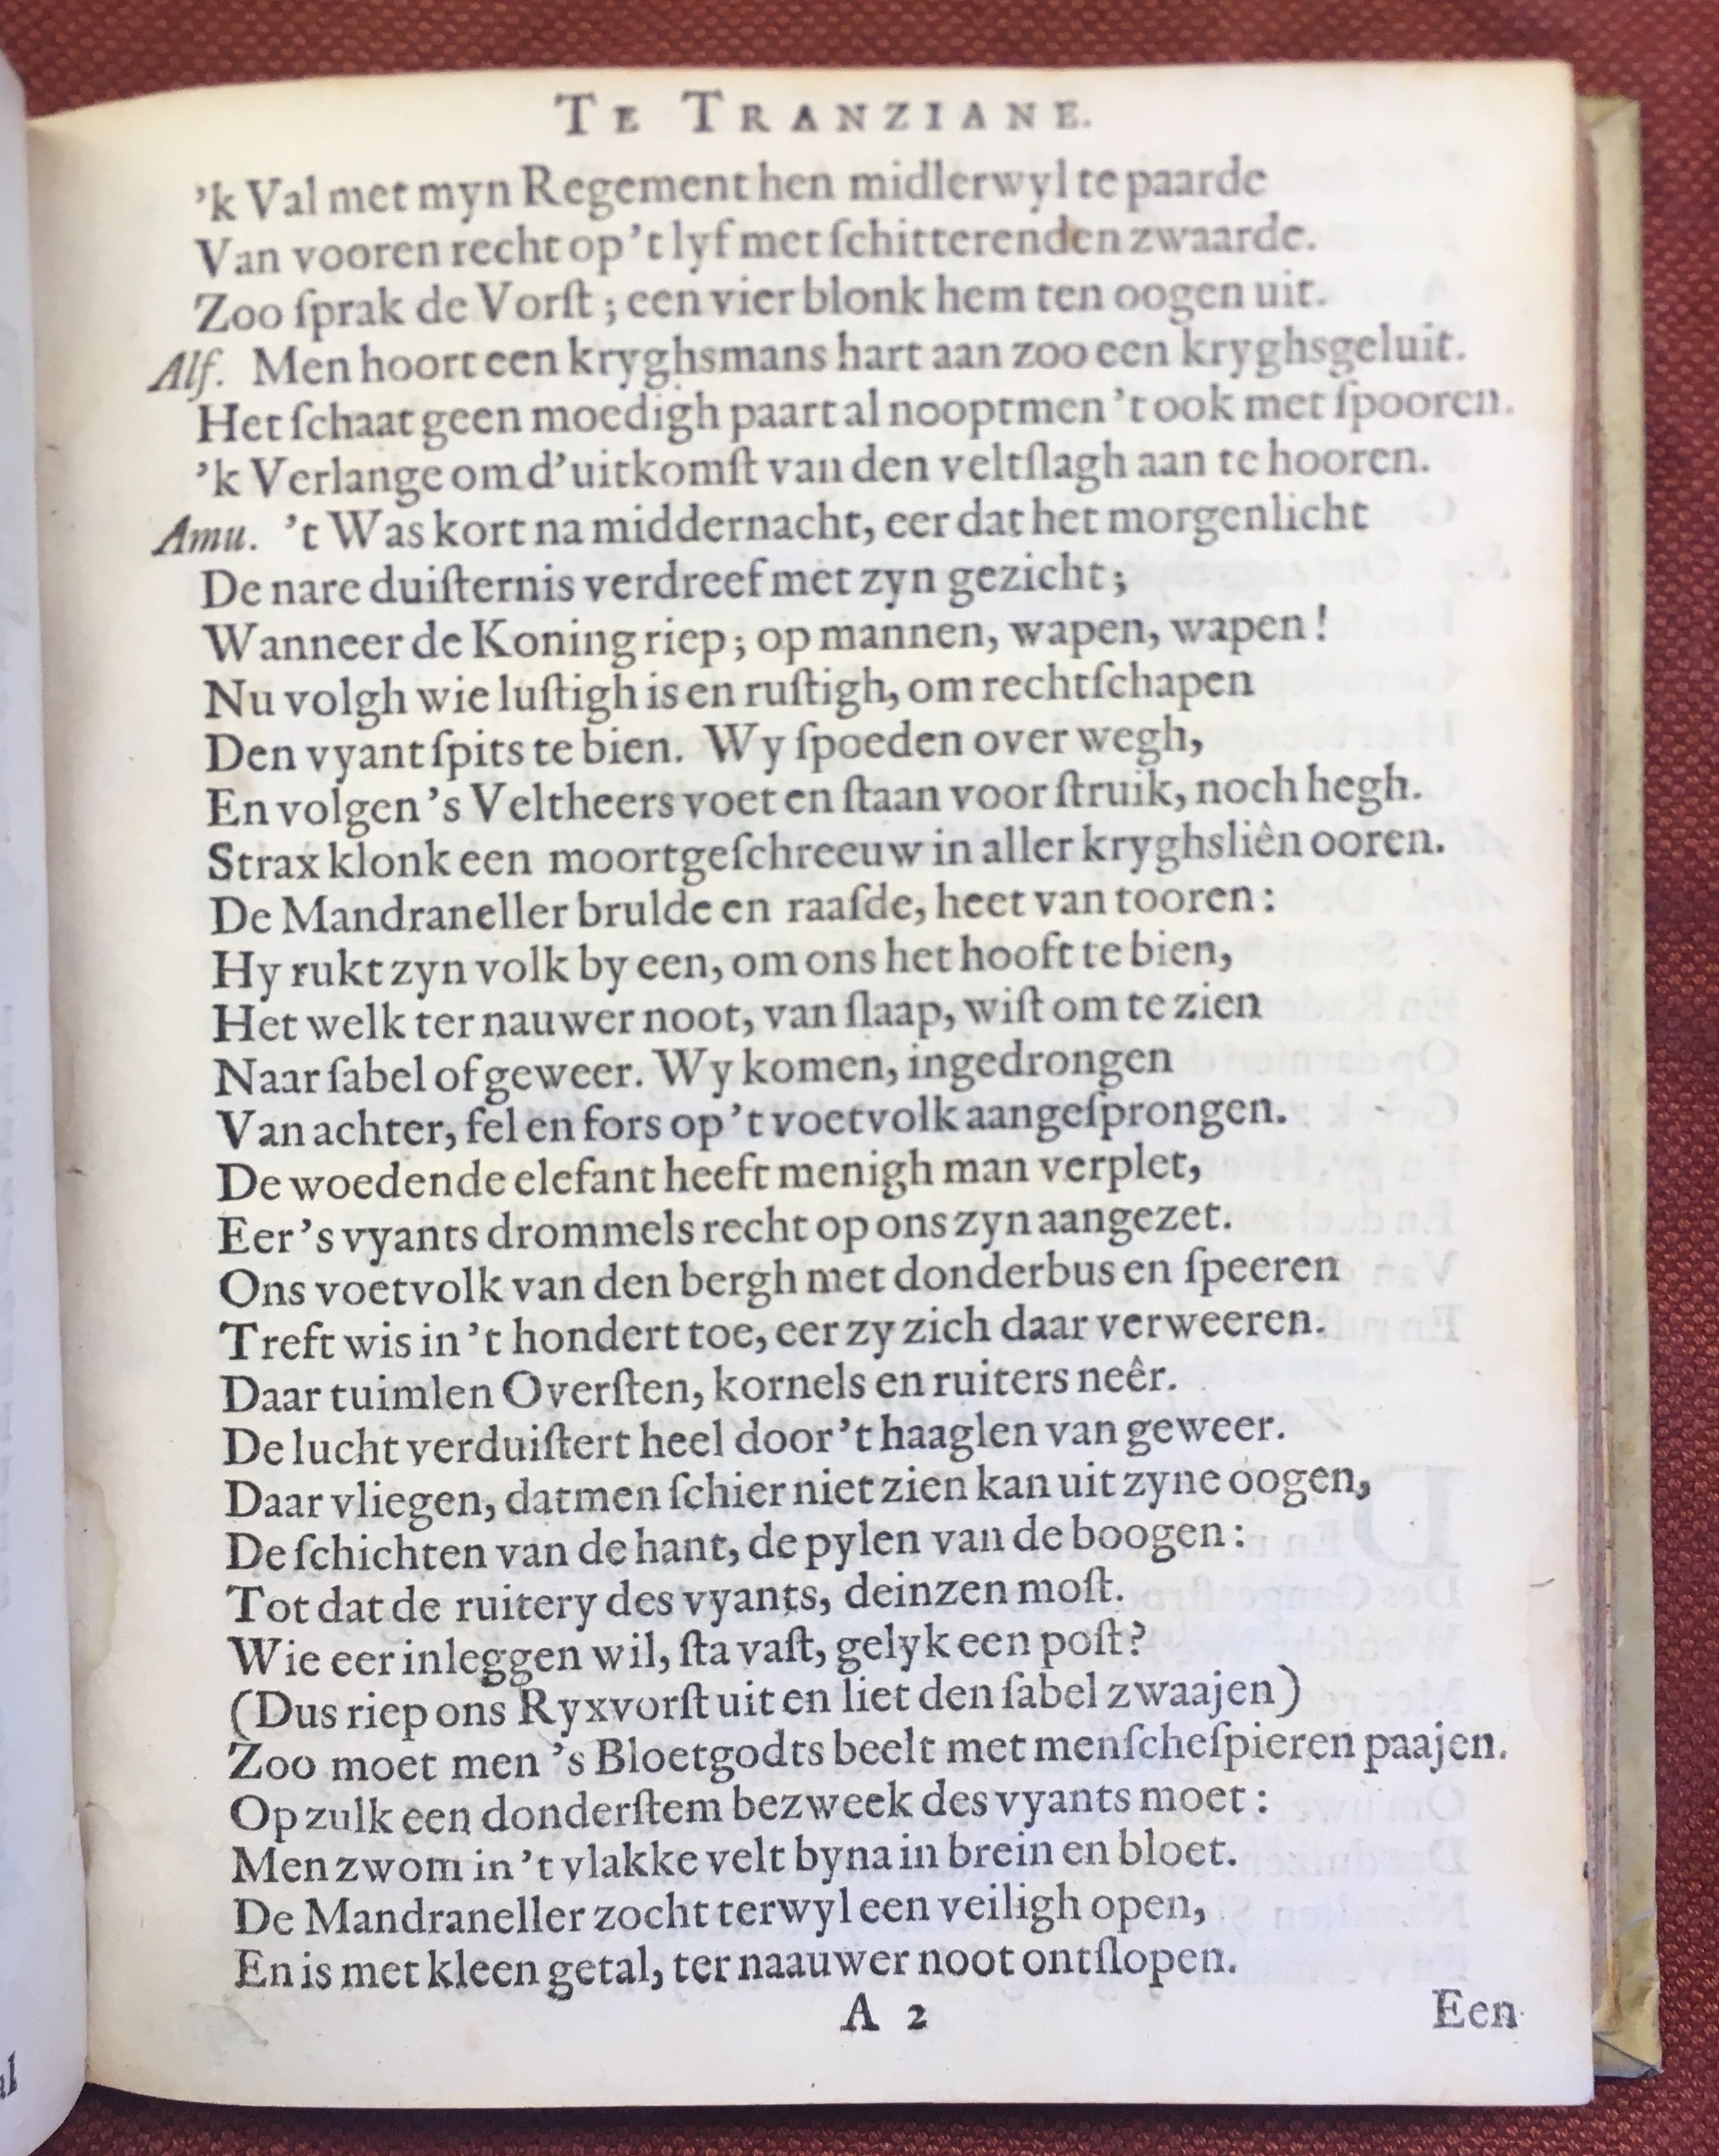 TE TRANZIANE.
'k Val met myn Regement hen midlerwyl te paarde
Van vooren recht op 't lyf met ſchitterenden zwaarde.
Zoo ſprak de Vorſt; een vier blonk hem ten oogen uit.
Alf. Men hoort een kryghsmans hart aan zoo een kryghsgeluit.
Het ſchaat geen moedigh paart al nooptmen 't ook met ſpooren.
'k Verlange om d'uitkomſt van den veltſlagh aan te hooren.
Amu. 't Was kort na middernacht, eer dat het morgenlicht
De nare duiſternis verdreef met zyn gezicht;
Wanneer de Koning riep; op mannen, wapen, wapen!
Nu volgh wie luſtigh is en ruſtigh, om rechtſchapen
Den vyant ſpits te bien. Wy ſpoeden over wegh,
En volgen 's Veltheers voet en ſtaan voor ſtruik, noch hegh.
Strax klonk een moortgeſchreeuw in aller kryghsliên ooren.
De Mandraneller brulde en raaſde, heet van tooren:
Hy rukt zyn volk by een, om ons het hooft te bien,
Het welk ter nauwer noot, van ſlaap, wiſt om te zien
Naar ſabel of geweer. Wy komen, ingedrongen
Van achter, fel en fors op 't voetvolk aangeſprongen.
De woedende elefant heeft menigh man verplet,
Eer 's vyants drommels recht op ons zyn aangezet.
Ons voetvolk van den bergh met donderbus en ſpeeren
Treft wis in 't hondert toe, eer zy zich daar verweeren.
Daar tuimlen Overſten, kornels en ruiters neêr.
De lucht verduiſtert heel door 't haaglen van geweer.
Daar vliegen, datmen ſchier niet zien kan uit zyne oogen,
De ſchichten van de hant, de pylen van de boogen:
Tot dat de ruitery des vyants, deinzen moſt.
Wie eer inleggen wil, ſta vaſt, gelyk een poſt?
(Dus riep ons Ryxvorſt uit en liet den ſabel zwaajen)
Zoo moet men 's Bloetgodts beelt met menſcheſpieren paajen.
Op zulk een donderſtem bezweek des vyants moet:
Men zwom in 't vlakke velt byna in brein en bloet.
De Mandraneller zocht terwyl een veiligh open,
En is met kleen getal, ter naauwer noot ontſlopen.
A 2 Een
al